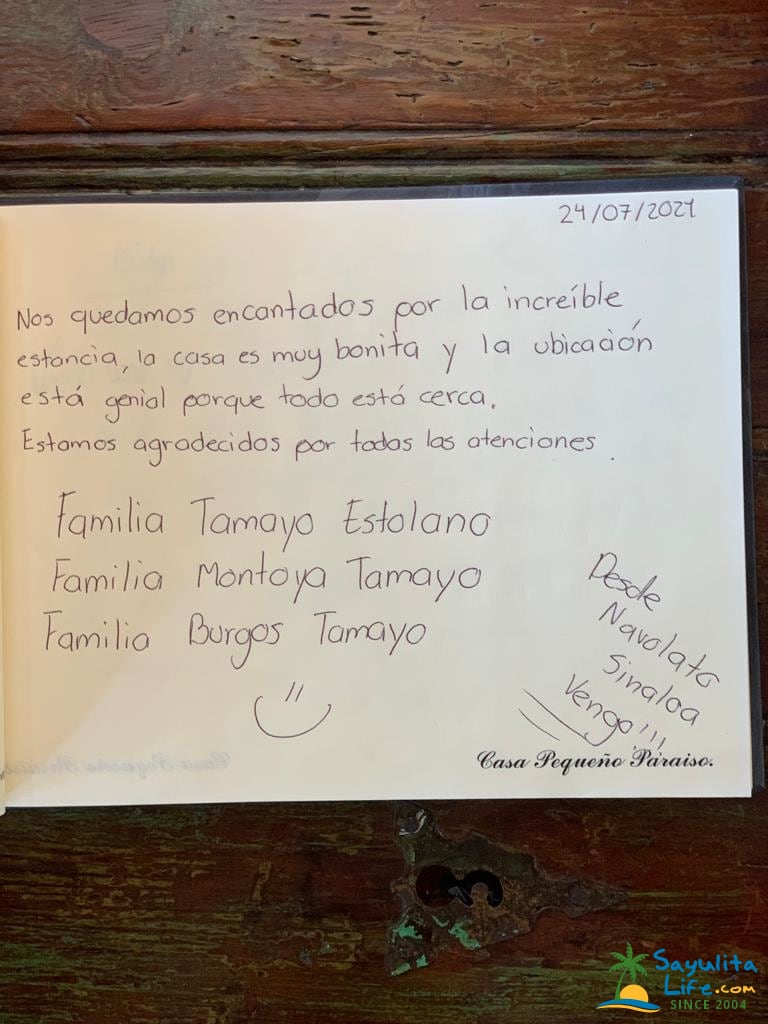 24/07/2021
Nos quedamos encantados por la increíble
estancia, la casa es muy bonita y la ubicación
está genial porque todo está cerca.
Estamos agradecidos por todas las atenciones.
Familia Tamayo Estolano
Familia Montoya Tamayo
Familia Burgos Tamayo
Desde
Navolato
Sinaloa
Vengo!!!
Casa Pequeño Paraiso.
Sayulita
Life.com
SINCE 2004